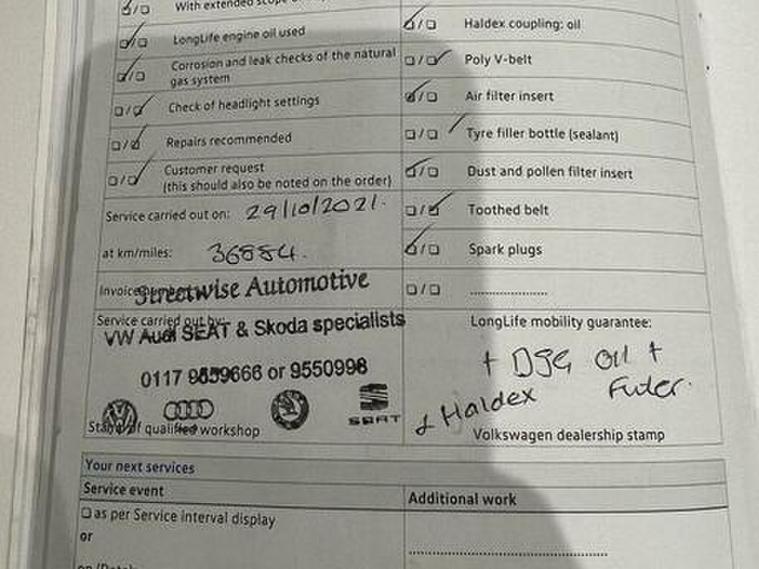 With extended scope
LongLife engine oil used
Corrosion and leak checks of the natural
gas system
Check of headlight settings
Repairs recommended
Customer request
(this should also be noted on the order)
Service carried out on: 29/10/2021.
at km/miles: 36884.
Invoice number:
Streetwise Automotive
Service carried out by:
VW Audi SEAT & Skoda specialists
0117 9659666 or 9550996
SEAT
Stamp of qualified workshop
Haldex coupling: oil
Poly V-belt
Air filter insert
Tyre filler bottle (sealant)
Dust and pollen filter insert
Toothed belt
Spark plugs
....................
LongLife mobility guarantee:
+ DSG Oil + Filter.
& Haldex
Volkswagen dealership stamp
Your next services
Service event
Additional work
as per Service interval display
or